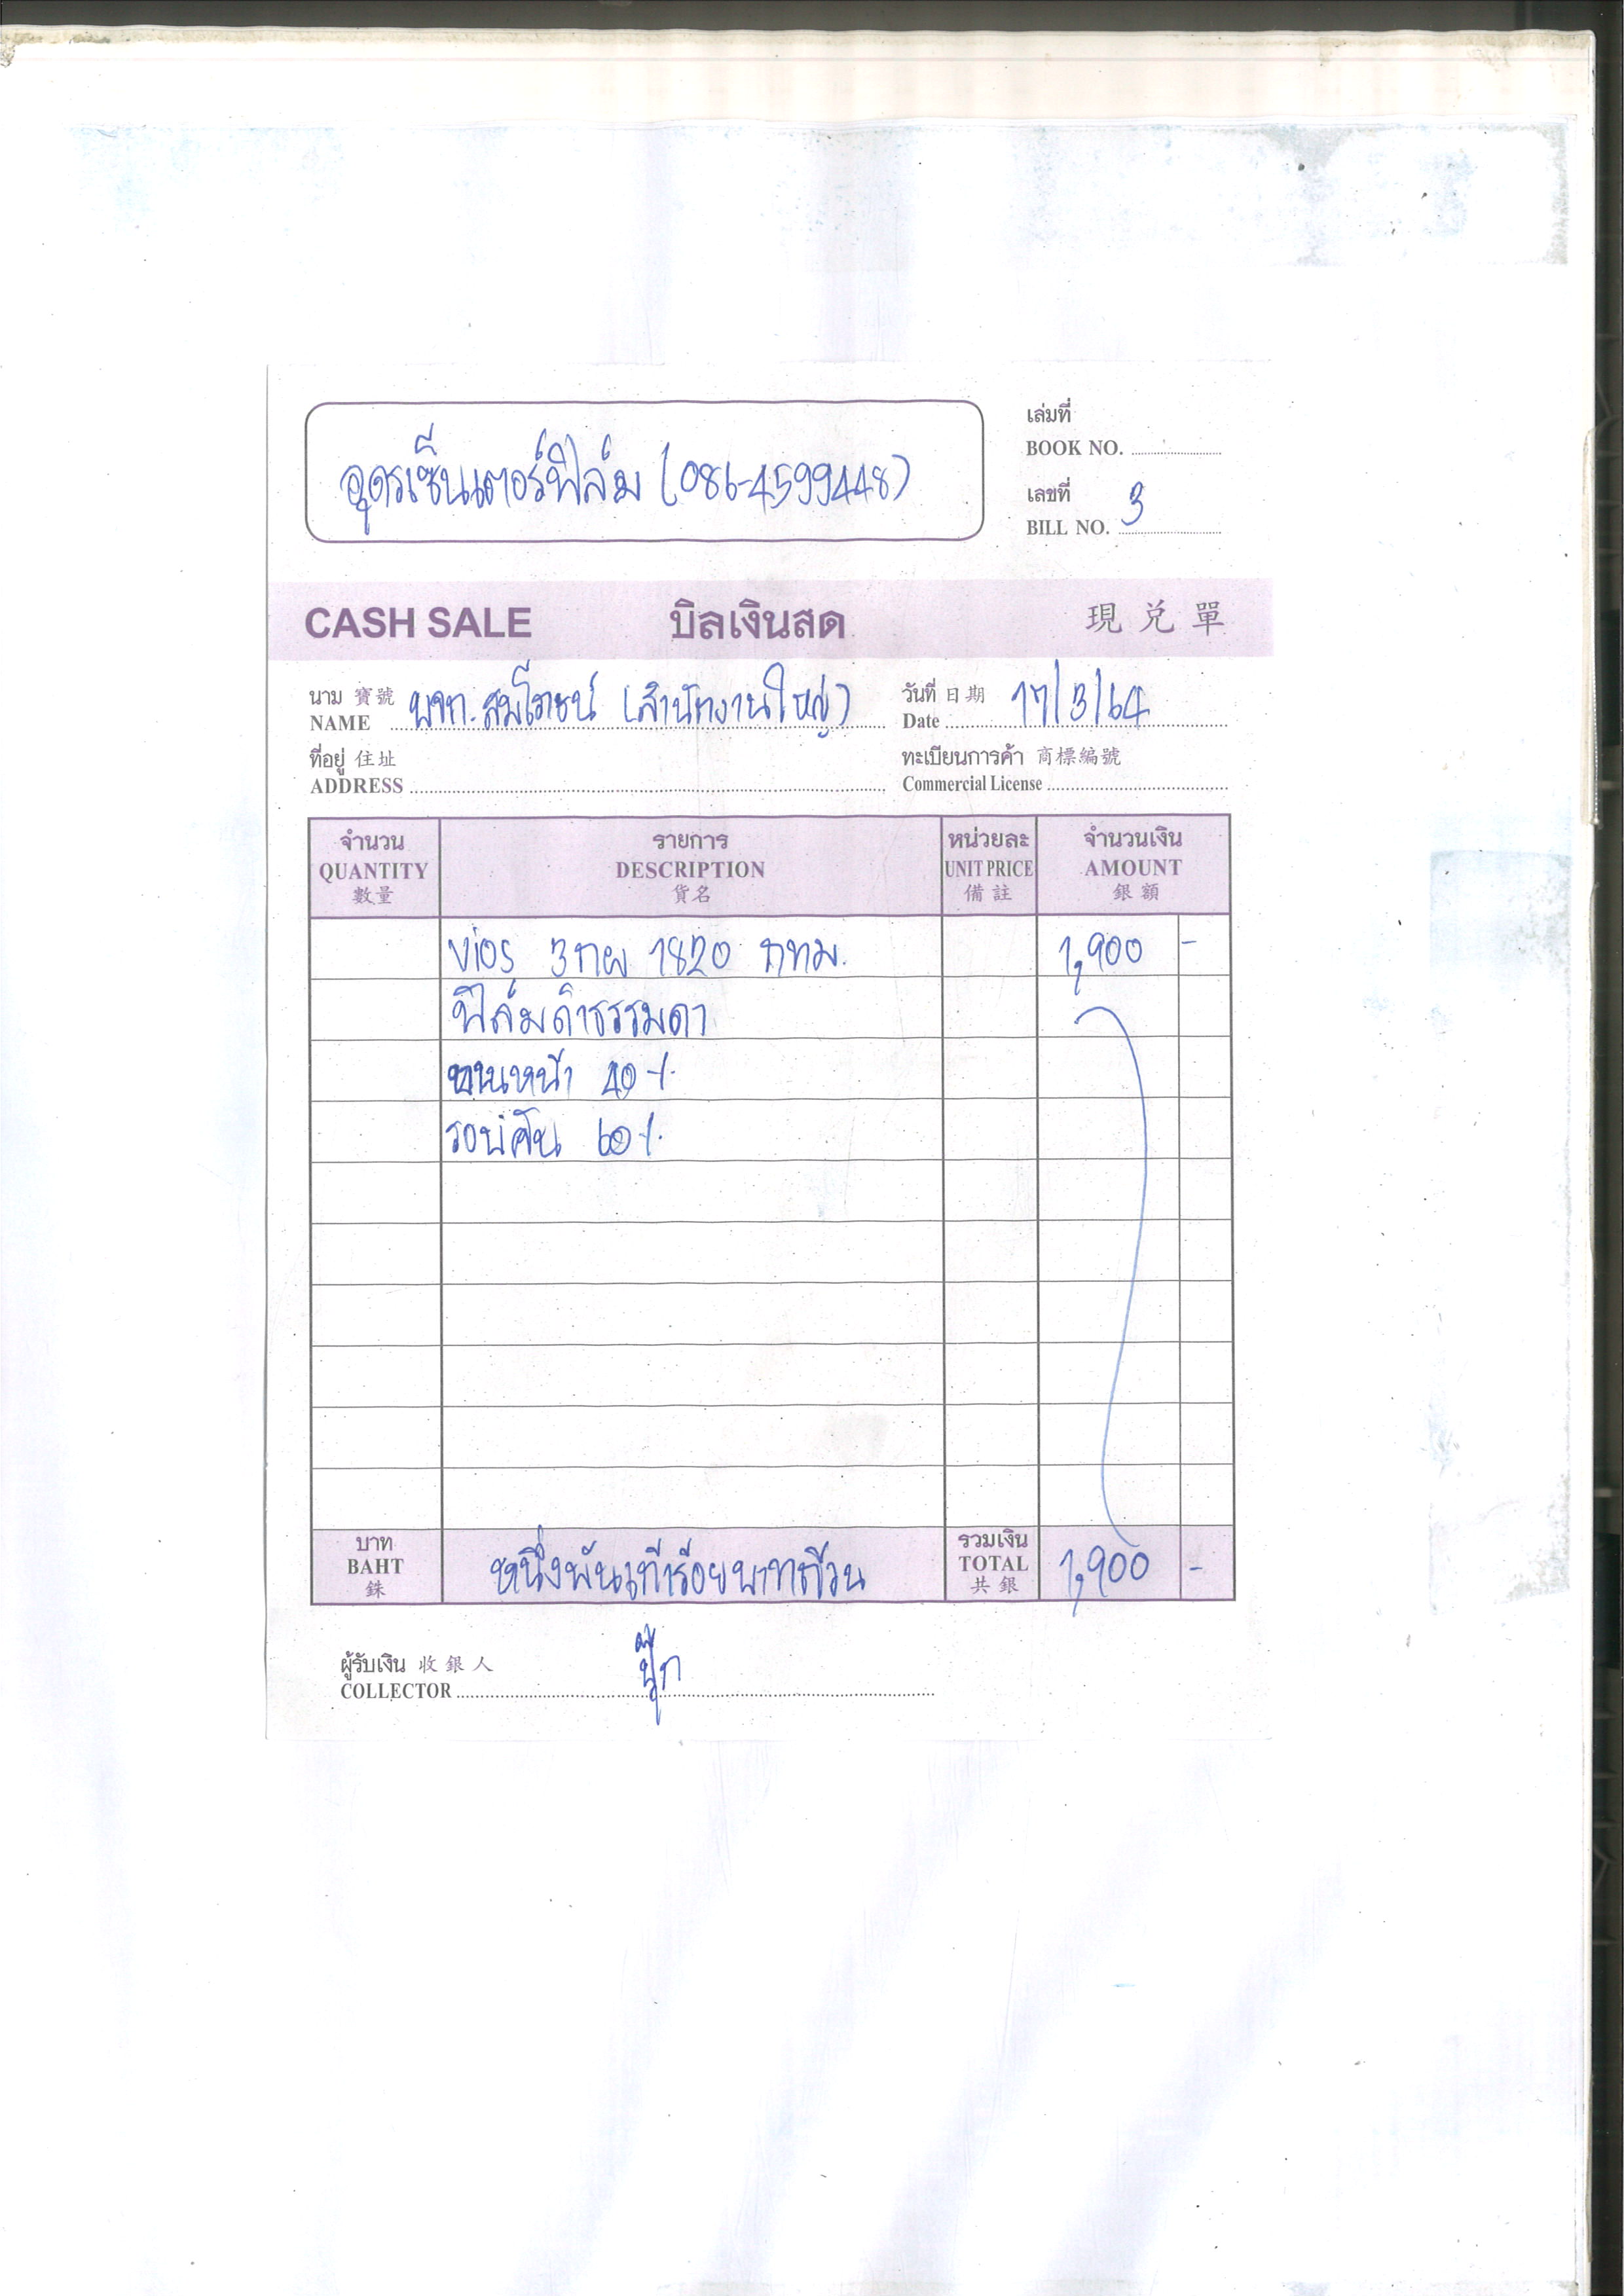 อุดรเซ็นเตอร์ฟิล์ม (086-4599448)
เล่มที่
BOOK NO.
เลขที่
BILL NO. 3
CASH SALE บิลเงินสด 現兌單
นาม 寶號 บจก.สมโภชน์ (สำนักงานใหญ่) วันที่ 日期 17/3/64
NAME Date
ที่อยู่ 住址 ทะเบียนการค้า 商標編號
ADDRESS Commercial License
จำนวน รายการ หน่วยละ จำนวนเงิน
QUANTITY DESCRIPTION UNIT PRICE AMOUNT
數量 貨名 備註 銀額
Vios 3กผ 1820 กทม. 1,900 -
ฟิล์มดำธรรมดา
บานหน้า 40%
รอบคัน 60%
บาท รวมเงิน
BAHT หนึ่งพันเก้าร้อยบาทถ้วน TOTAL 1,900 -
銖 共銀
ผู้รับเงิน 收銀人 ปุ๊ก
COLLECTOR